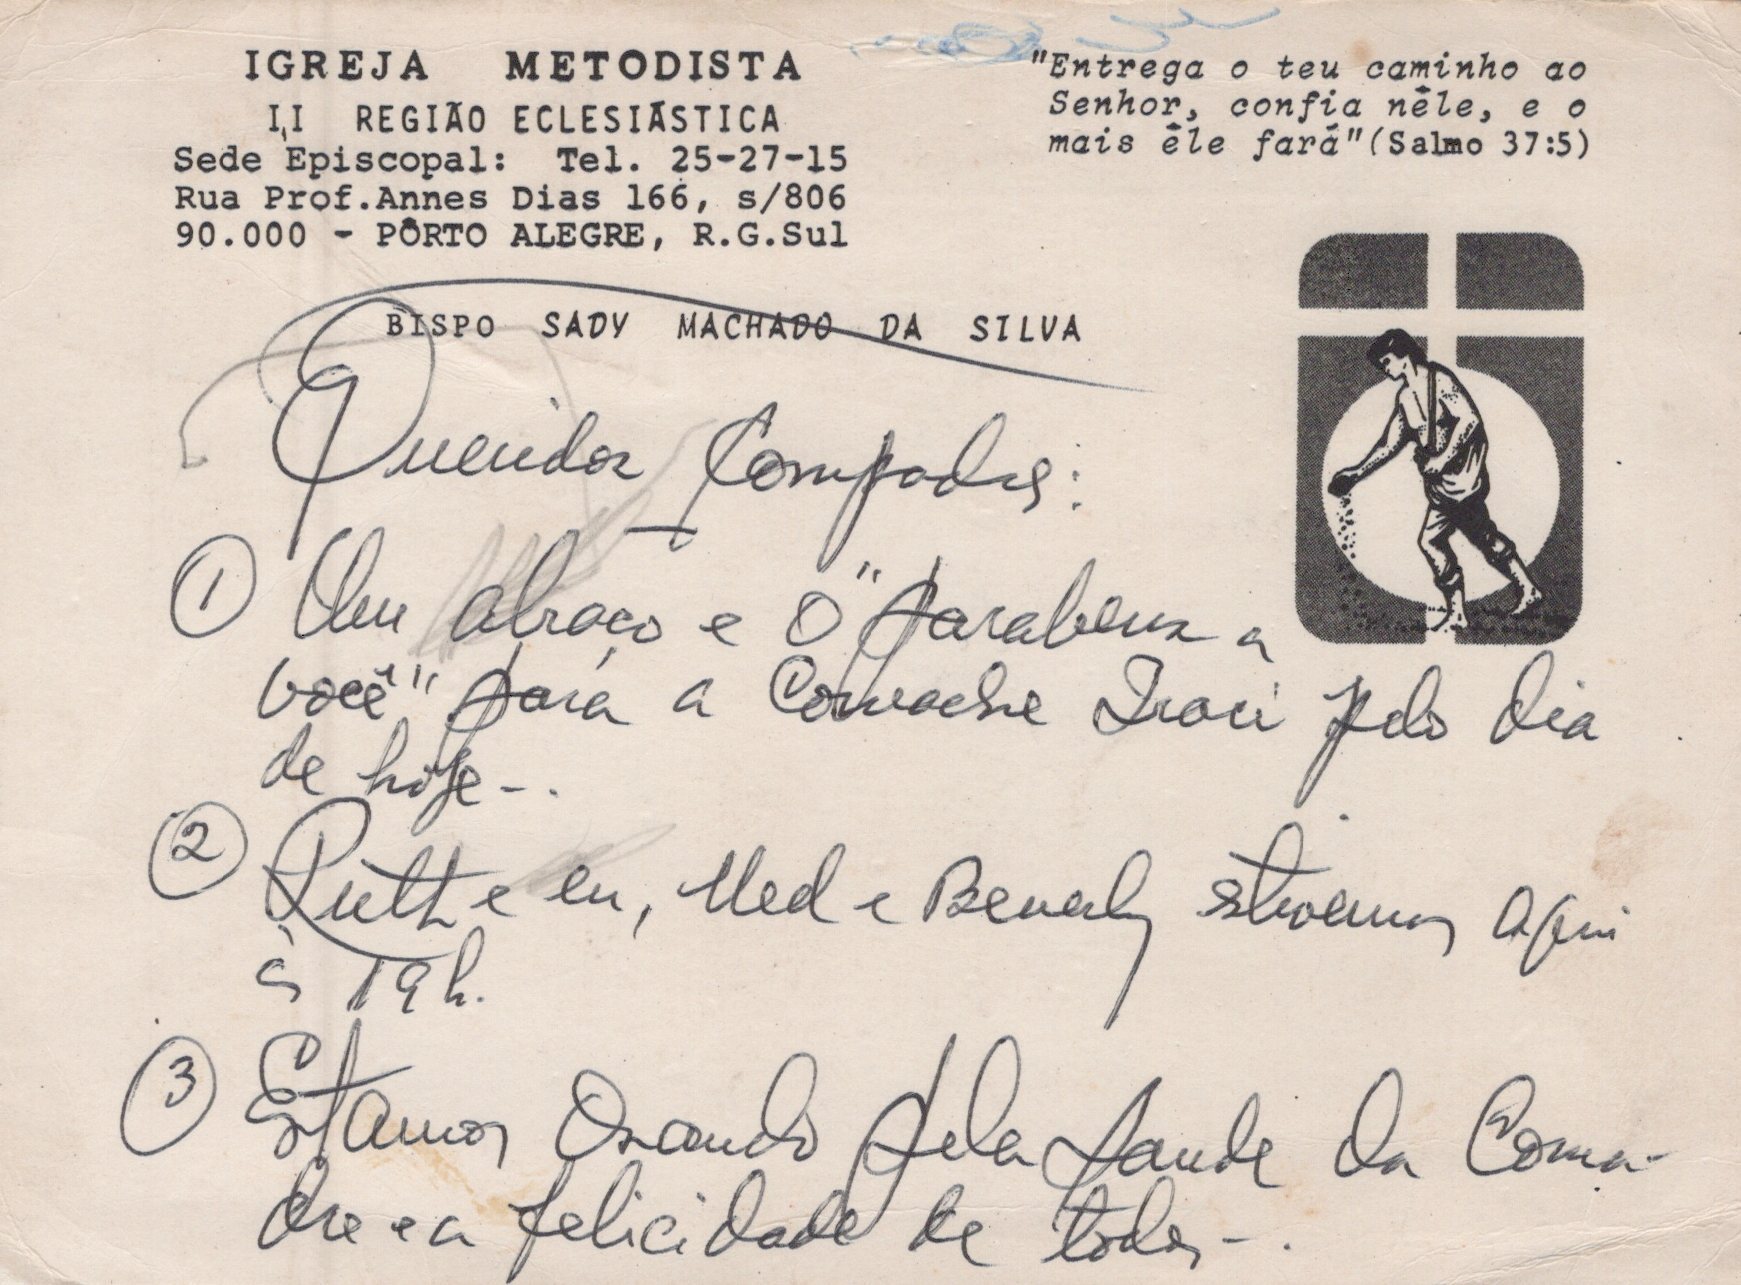 IGREJA METODISTA
II REGIÃO ECLESIÁSTICA
Sede Episcopal: Tel. 25-27-15
Rua Prof.Annes Dias 166, s/806
90.000 - PÔRTO ALEGRE, R.G.Sul
"Entrega o teu caminho ao
Senhor, confia nêle, e o
mais êle fará"(Salmo 37:5)
BISPO SADY MACHADO DA SILVA
Queridos Compadres:
1 Um abraço e o "parabens a
você" para a Comadre Iraci pelo dia
de hoje-.
2 Ruth e eu, Ned e Beverly estivemos aqui
às 19h.
3 Estamos Orando pela saude da Coma-
dre e a felicidade de todos-.